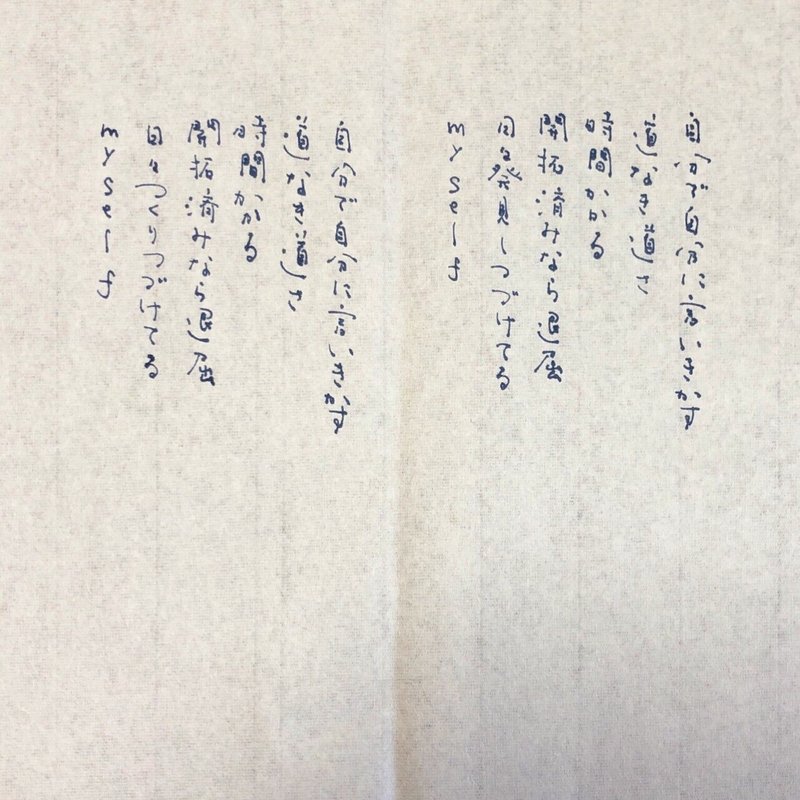 自分で自分に言いきかす
道なき道さ
時間かかる
開拓済みなら退屈
日々発見しつづけてる
myself
自分で自分に言いきかす
道なき道さ
時間かかる
開拓済みなら退屈
日々つくりつづけてる
myself